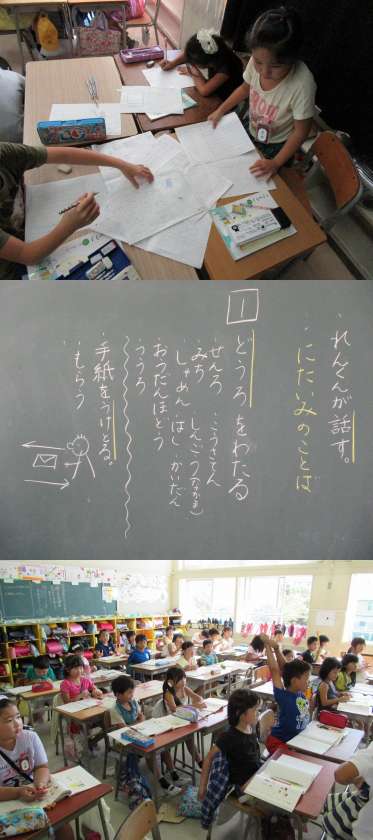 ・れんくんが話す。
・にたいみのことば
1 どうろをわたる
せんろ ・こうさてん
みち ・しんごう(なかま)
しゃめん ・はし ・かいだん
おうだんほどう
・手紙をうけとる。
・もらう